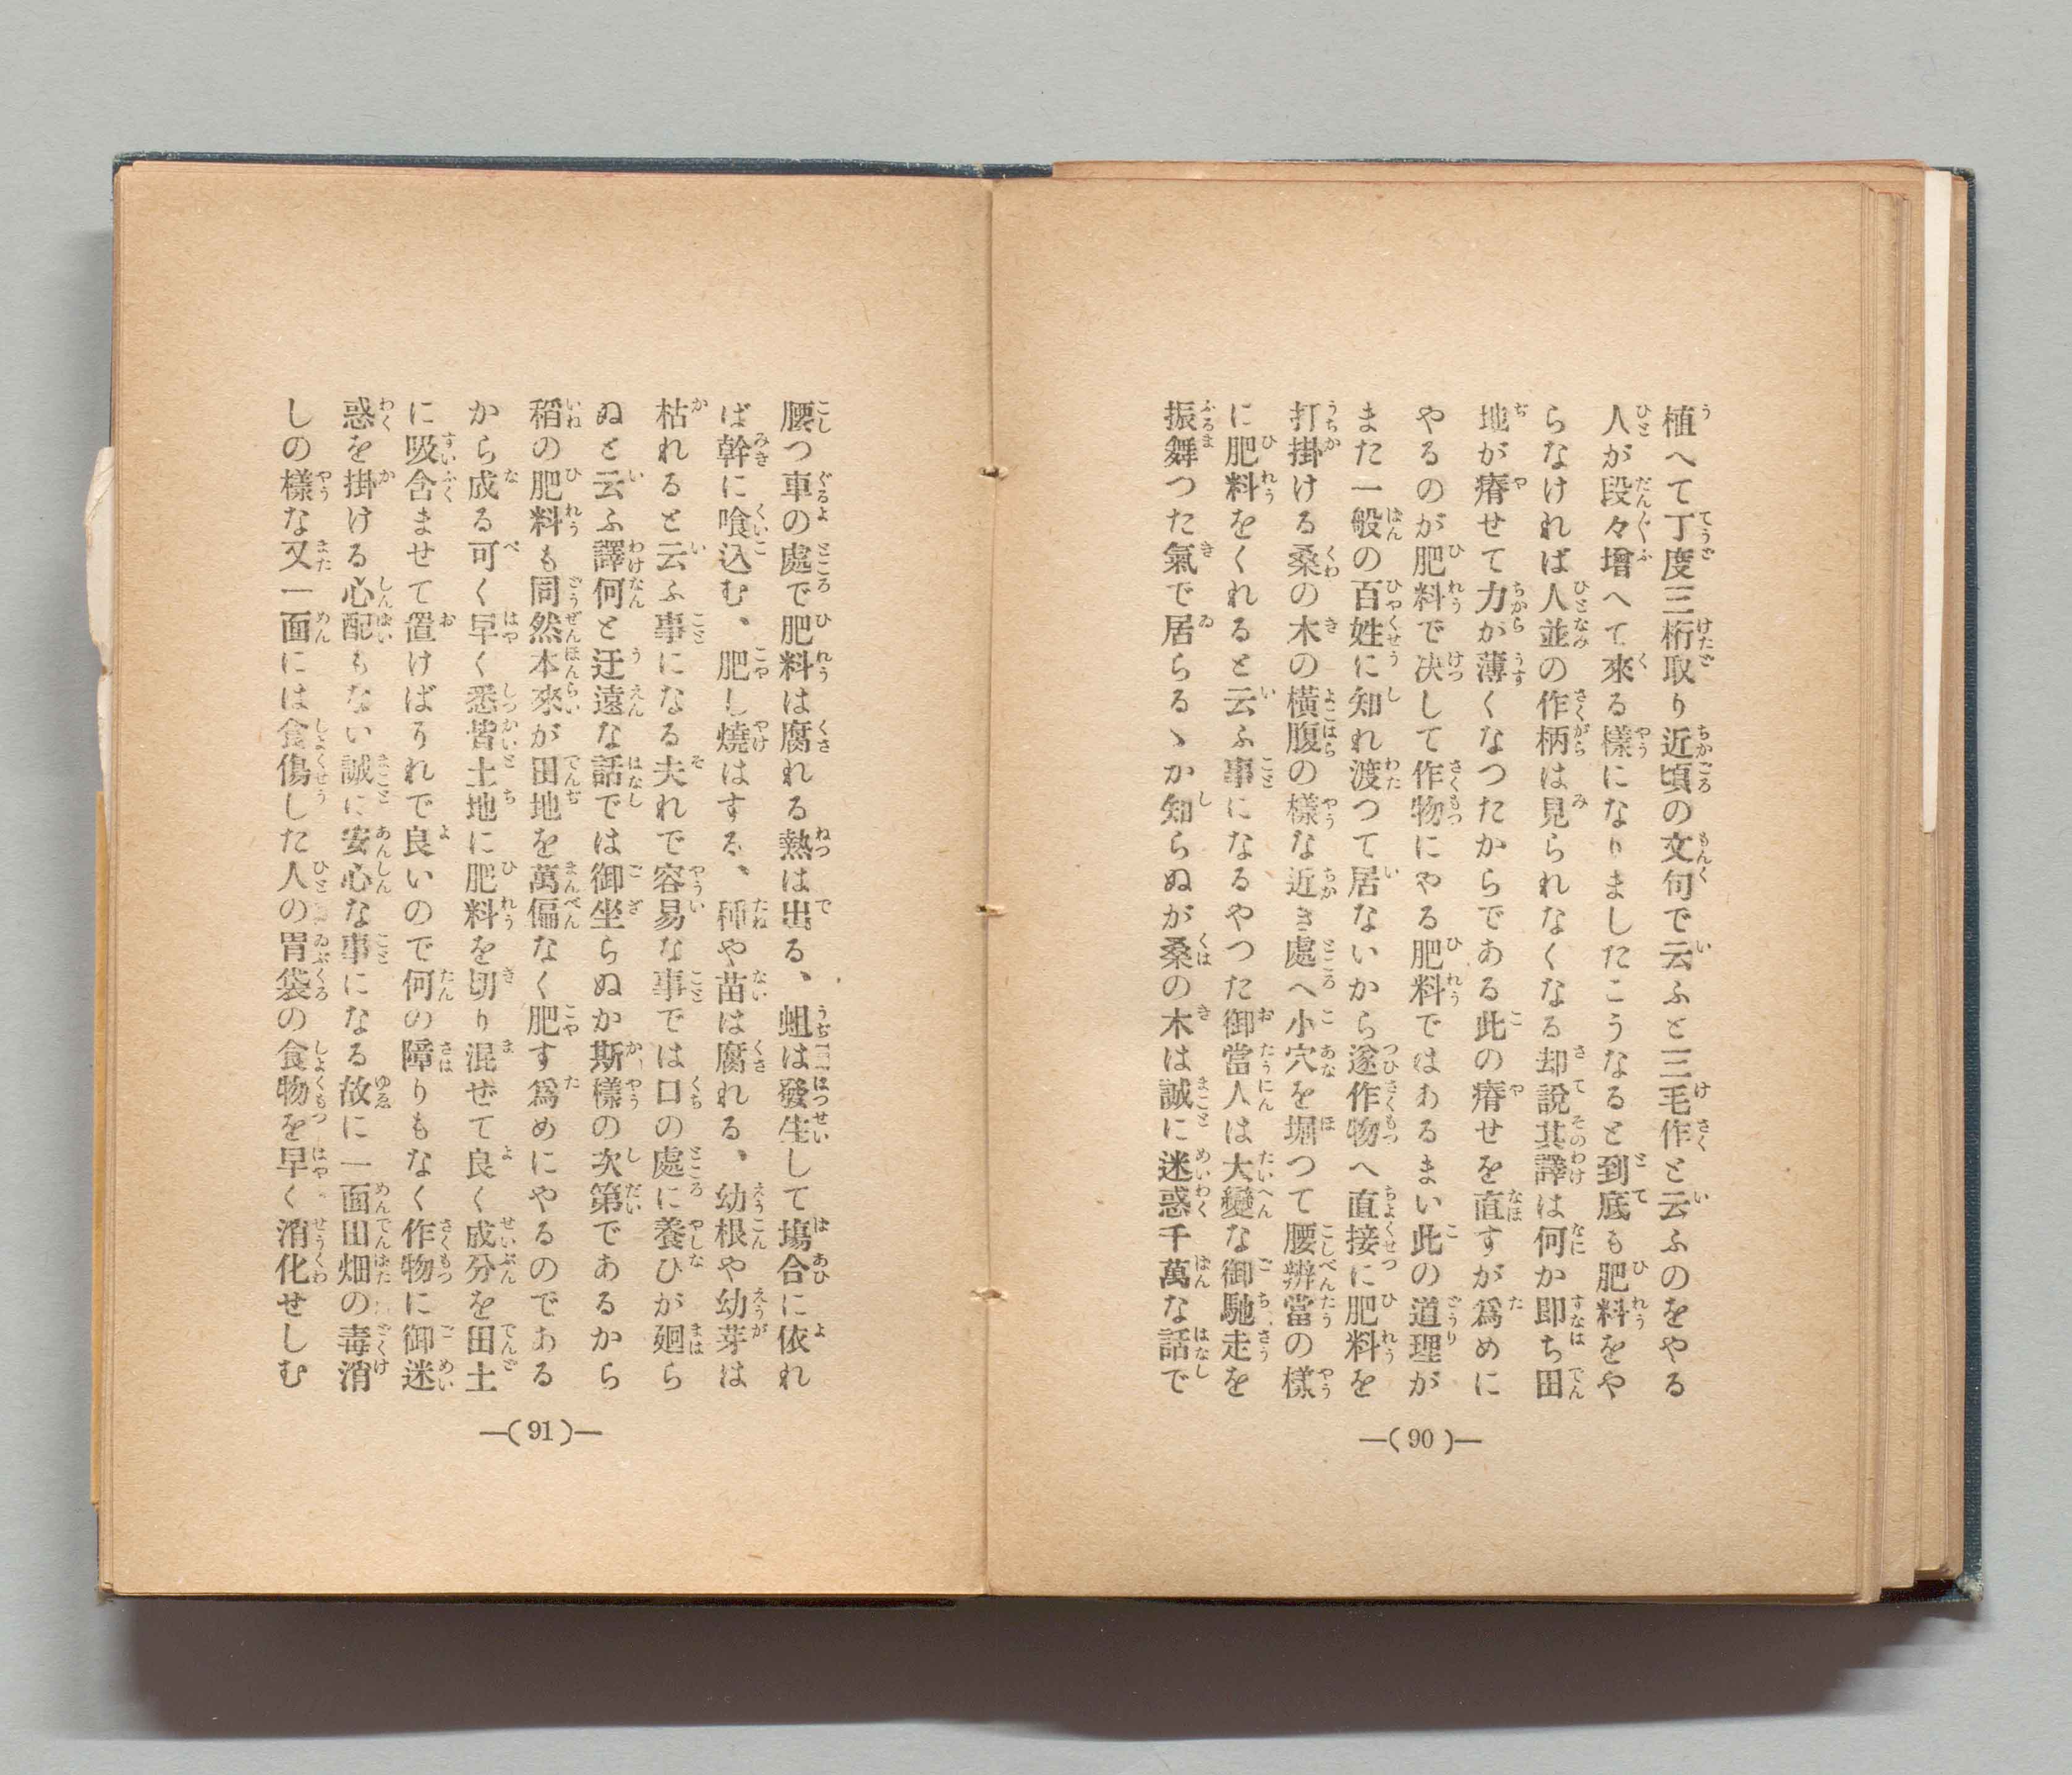 植へて丁度三桁取り近頃の文句で云ふと三毛作と云ふのをやる
人が段々増へて來る樣になりましたこうなると到底も肥料をや
らなければ人並の作柄は見られなくなる却說其譯は何か即ち田
地が瘠せて力が薄くなつたからである此の瘠せを直すが爲めに
やるのが肥料で决して作物にやる肥料ではあるまい此の道理が
また一般の百姓に知れ渡つて居ないから遂作物へ直接に肥料を
打掛ける桑の木の橫腹の樣な近き處へ小穴を堀つて腰辨當の樣
に肥料をくれると云ふ事になるやつた御當人は大變な御馳走を
振舞つた氣で居らるゝか知らぬが桑の木は誠に迷惑千萬な話で
—(90)—
腰つ車の處で肥料は腐れる熱は出る、蛆は發生して塲合に依れ
ば幹に喰込む、肥し燒はする、種や苗は腐れる、幼根や幼芽は
枯れると云ふ事になる夫れで容易な事では口の處に養ひが廻ら
ぬと云ふ譯何と迂遠な話では御坐らぬか斯樣の次第であるから
稻の肥料も同然本來が田地を萬偏なく肥す爲めにやるのである
から成る可く早く悉皆土地に肥料を切り混ぜて良く成分を田土
に吸含ませて置けばうれで良いので何の障りもなく作物に御迷
惑を掛ける心配もない誠に安心な事になる故に一面田畑の毒消
しの樣な又一面には食傷した人の胃袋の食物を早く消化せしむ
—(91)—